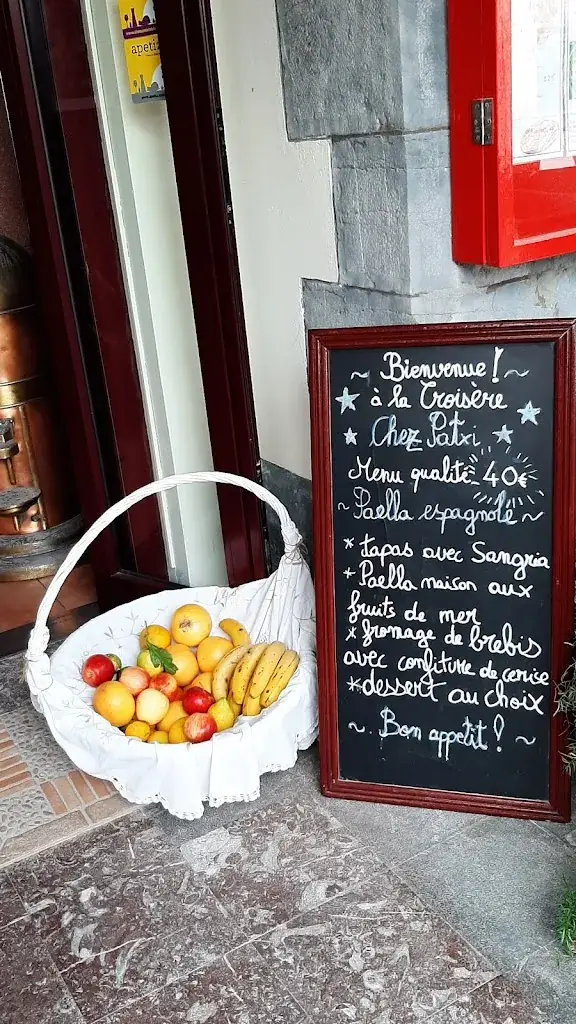 apeti
~ Bienvenue! ~
à la Croisère
Chez Patxi
Menu qualité 40€
~ Paella espagnole ~
* tapas avec Sangria
* Paella maison aux
fruits de mer
* fromage de brebis
avec confiture de cerise
* dessert au choix
~ Bon appetit! ~